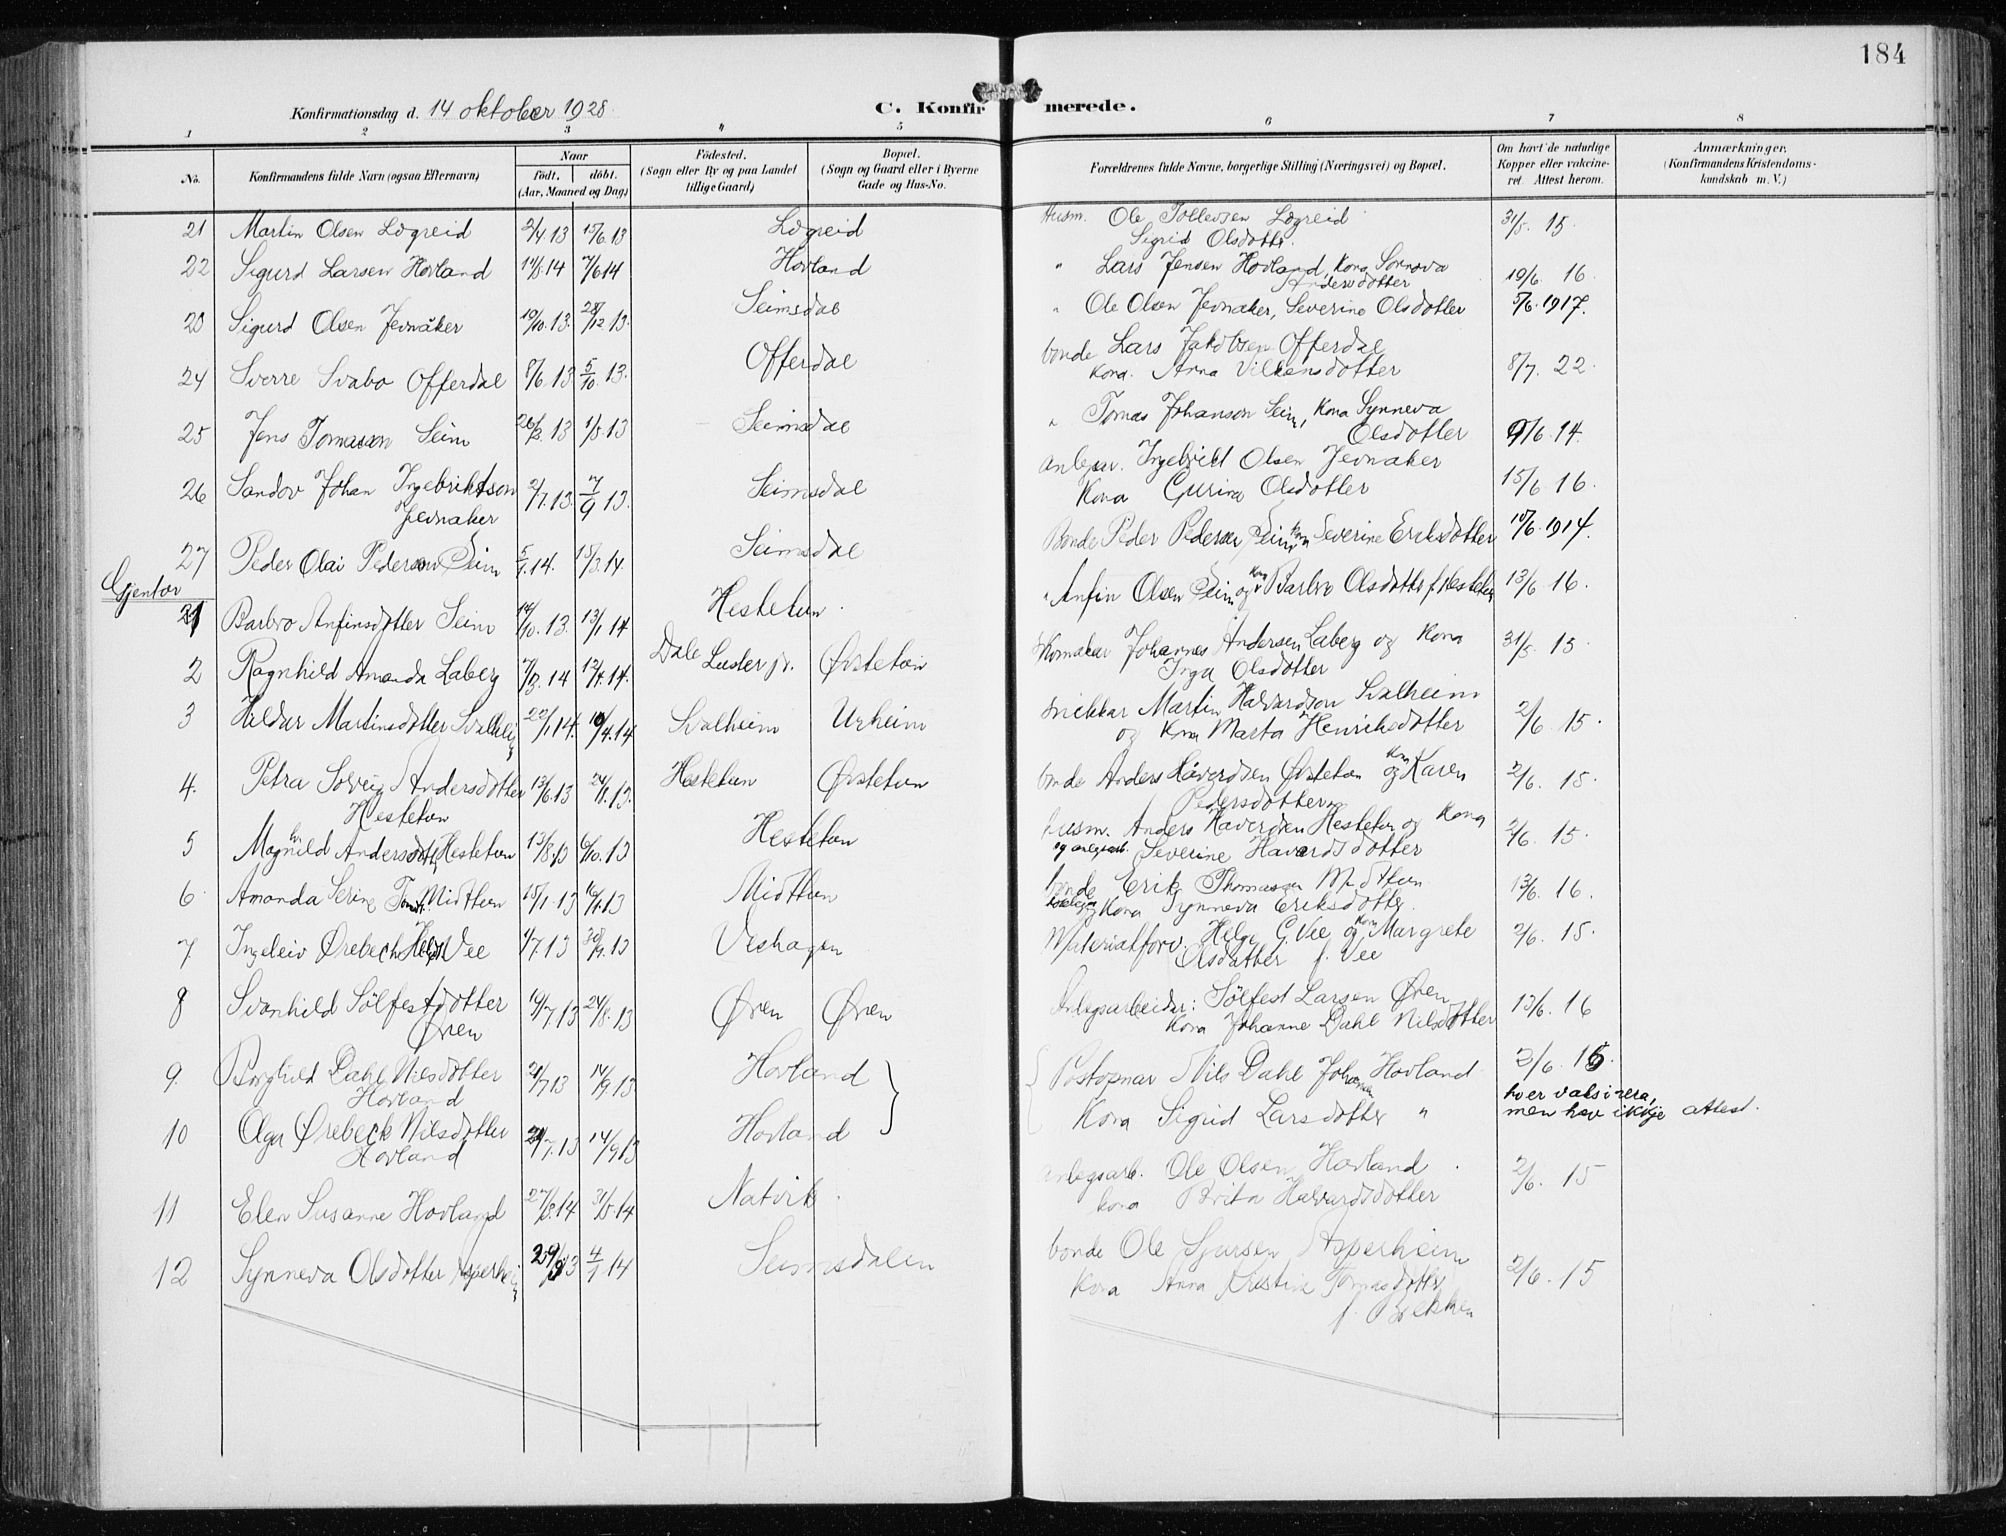 184
Konfirmationsdag d. 14 oktober 1928.
C. Konfirmerede.
1 2 3 4 5 6 7 8
No.
Konfirmandens fulde Navn (ogsaa Efternavn)
Naar
født. døbt.
(Aar, Maaned og Dag)
Fødested.
(Sogn eller By og paa Landet
tillige Gaard)
Bopæl.
(Sogn og Gaard eller i Byerne
Gade og Hus-No.
Forældrenes fulde Navne, borgerlige Stilling (Næringsvei) og Bopæl.
Om havt de naturlige
Kopper eller vakcine-
ret. Attest herom.
Anmærkninger.
(Konfirmandens Kristendoms-
kundskab m. V.)
21 Martin Olsen Lægreid 2/4 13 15/6 13 Lægreid Husm. Ole Tollevsen Lægreid 31/5. 15.
Sigrid Olsdotter.
22 Sigurd Larsen Hovland 14 7/6 14 Hovland " Lars Jensen Hovland, Kona 19/6 16
Andersdotter
23 Sigurd Olsen Jevnåker 19/10. 13. 28/12 13. Seimsdal " Ole Olsen Jevnaker, Severine Olsdotter 5/6. 1917.
24 Sverre Svabo Offerdal 8/6. 13 5/10. 13. Offerdal bonde Lars Jakobsen Offerdal 8/7. 22.
Kona. Anna Vilkensdotter
25 Jens Tomasson Seim 13 1/5 13 Seimsdal " Tomas Johanson Seim, Kona Synneva 9/6. 14.
Olsdotter
26 Sandov Johan Ingebriktson 2/7. 13. 7/9 13. Seimsdal anlegsar. Ingebrikt Olsen Jevnaker 15/6 16.
Jevnaker Kona Gurina Olsdotter
27 Peder Olai Pederson Seim 5/1. 14. 15/3. 14 Seimsdal Bonde Peder Pedersen Seim Kona Severine Eriksdotter 10/6. 1914.
Gjentor
1 Barbro Anfinsdotter Seim 14/10. 13. 13/1 14 Hestetun. " Anfin Olsen Seim og Kona Barbro Olsdotter f. Hestetun 13/6 16.
2 Ragnhild Amanda Laberg 14 12/4. 14. Dale Luster pr. Øvstetun Skomakar Johannes Andersen Laberg og Kona 31/5. 15.
Inga Olsdotter
3 Hildur Martinsdotter Svalheim 22/1 14. 10/4. 14 Svalheim Urheim snikkar Martin Halvardson Svalheim 2/6. 15.
og Kona Marta Henriksdotter
4. Petra Solveig Andersdotter 13/6. 13 13. Hestetun Øvstetun bonde Anders Håverdsen Øvstetun og Kona Karen 2/6. 15.
Hestetun Pedersdotter
5 Magnhild Andersdotter Hestetun 13/8. 13 6/10. 13 Hestetun husm. Anders Haverdsen Hestetun og Kona 2/6. 15.
og anlegsarb. Severine Havardsdotter
6. Amanda Serine Midttun 15/1. 13 13 Midttun bonde Erik Thomassen Midttun 13/6. 16.
og Kona Synneva Eriksdotter.
7. Ingeleiv Ørebech Vee 4/7. 13 13 Veshagen Materialforv. Helge G. Vee og Kona Margrete 2/6. 15.
Olsdatter f. Vee
8 Svanhild Sølfestdotter 19/7. 13 24/8. 13 Øren Øren Anlegsarbeidar: Sølfest Larsen Øren 13/6. 16
Øren Kona Johanne Dahl Nilsdotter
9. Borghild Dahl Nilsdotter 21/7 13 14/9. 13 Hovland Postopnar Nils Dahl Hovland 2/6. 15.
Hovland
10 Olga Ørebeck Nilsdotter 21/7. 13 14/9 13 Hovland Kona Sigrid Larsdotter " ho er vaksinera,
Hovland men hav ikkje attest.
11 Elen Susanne Hovland 14 31/5. 14 Natvik. anlegsarb. Ole Olsen Hovland. 2/6. 15
kona Brita Halvardsdotter
12 Synneva Olsdotter Asperheim 13 4/1 14 Seimsdalen bonde Ole Sjursen Asperheim 2/6. 15
Kona Anna Kristine Tomasdotter
f. Bekken